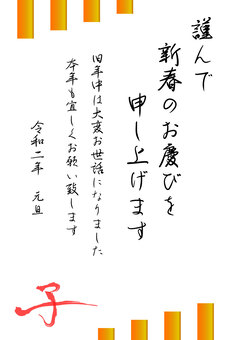 謹んで
新春のお慶びを
申し上げます
旧年中は大変お世話になりました
本年も宜しくお願い致します
令和二年 元旦
子